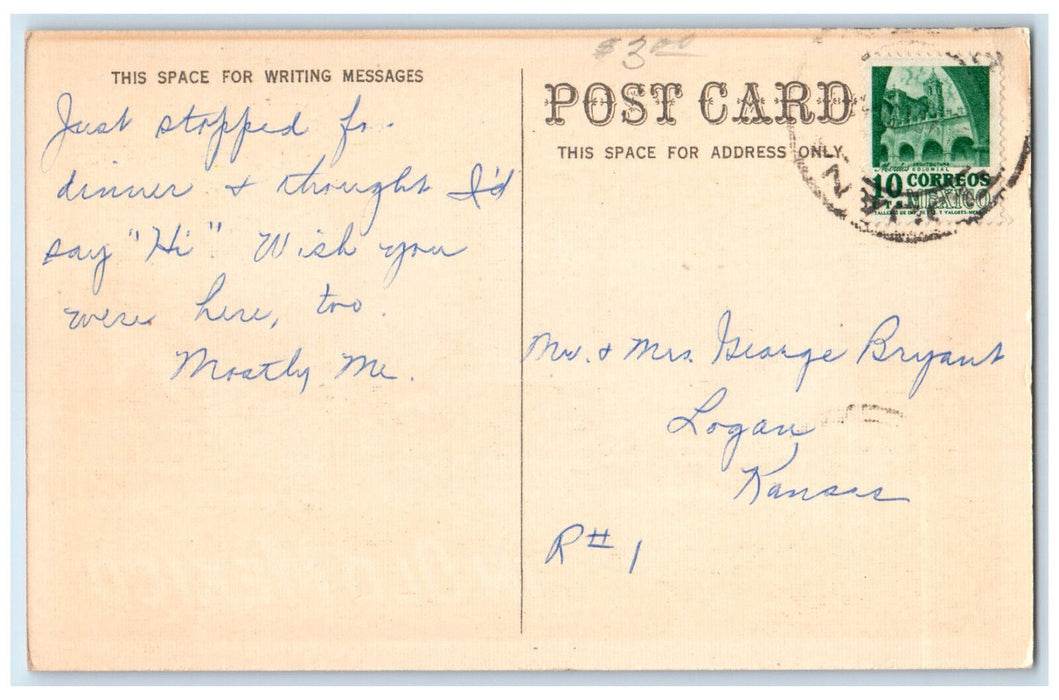 THIS SPACE FOR WRITING MESSAGES
Just stopped for
dinner & thought I'd
say "Hi" Wish you
were here, too.
Mostly Me.
$3.00
POST CARD
THIS SPACE FOR ADDRESS ONLY
Mr. & Mrs. George Bryant
Logan,
Kansas
R# 1
COLONIAL
10 CORREOS
CTS MEXICO